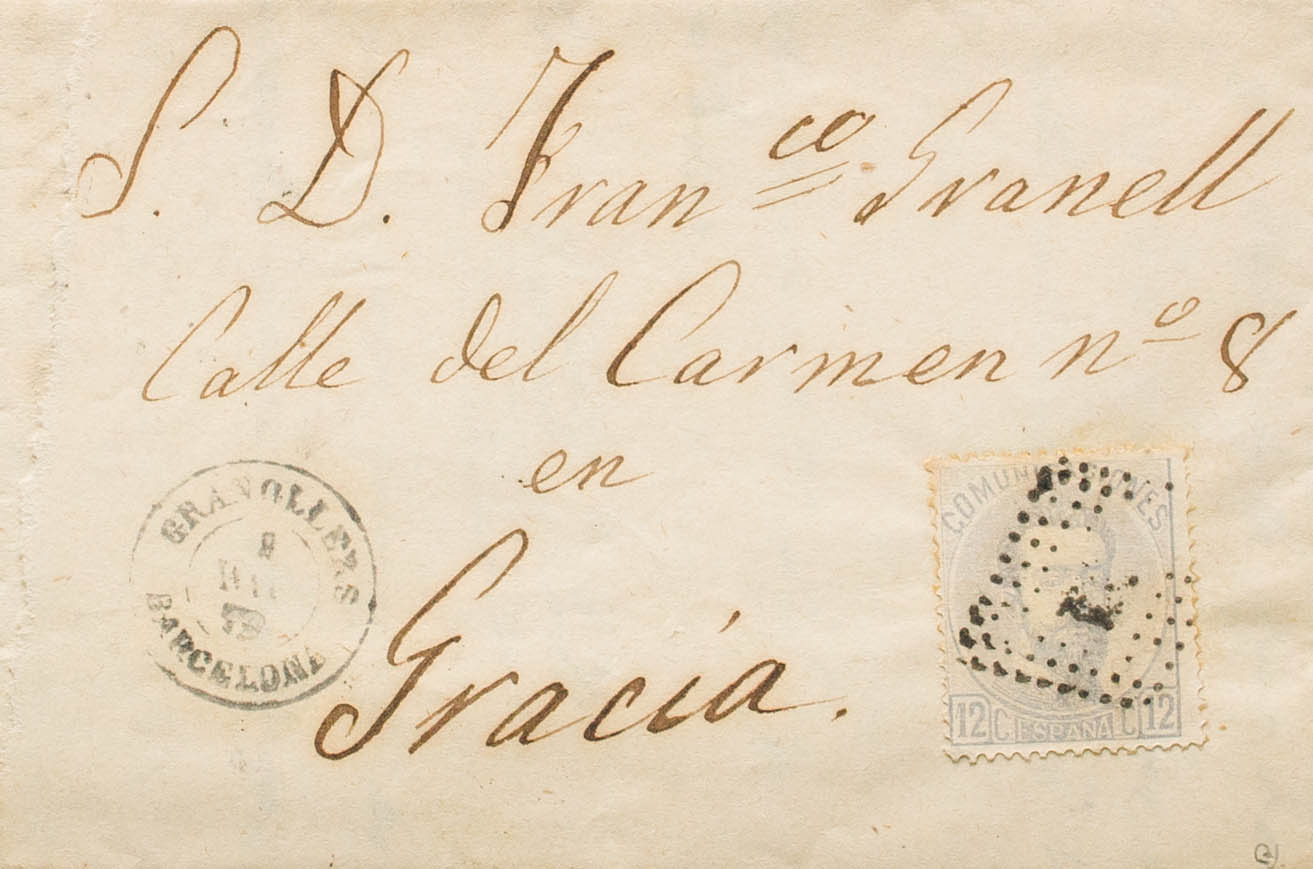 S. D. Fran co Granell
Calle del Carmen nº 8
en
Gracia.
GRANOLLERS
8
BARCELONA
COMUNICACIONES
12 C. ESPAÑA C. 12